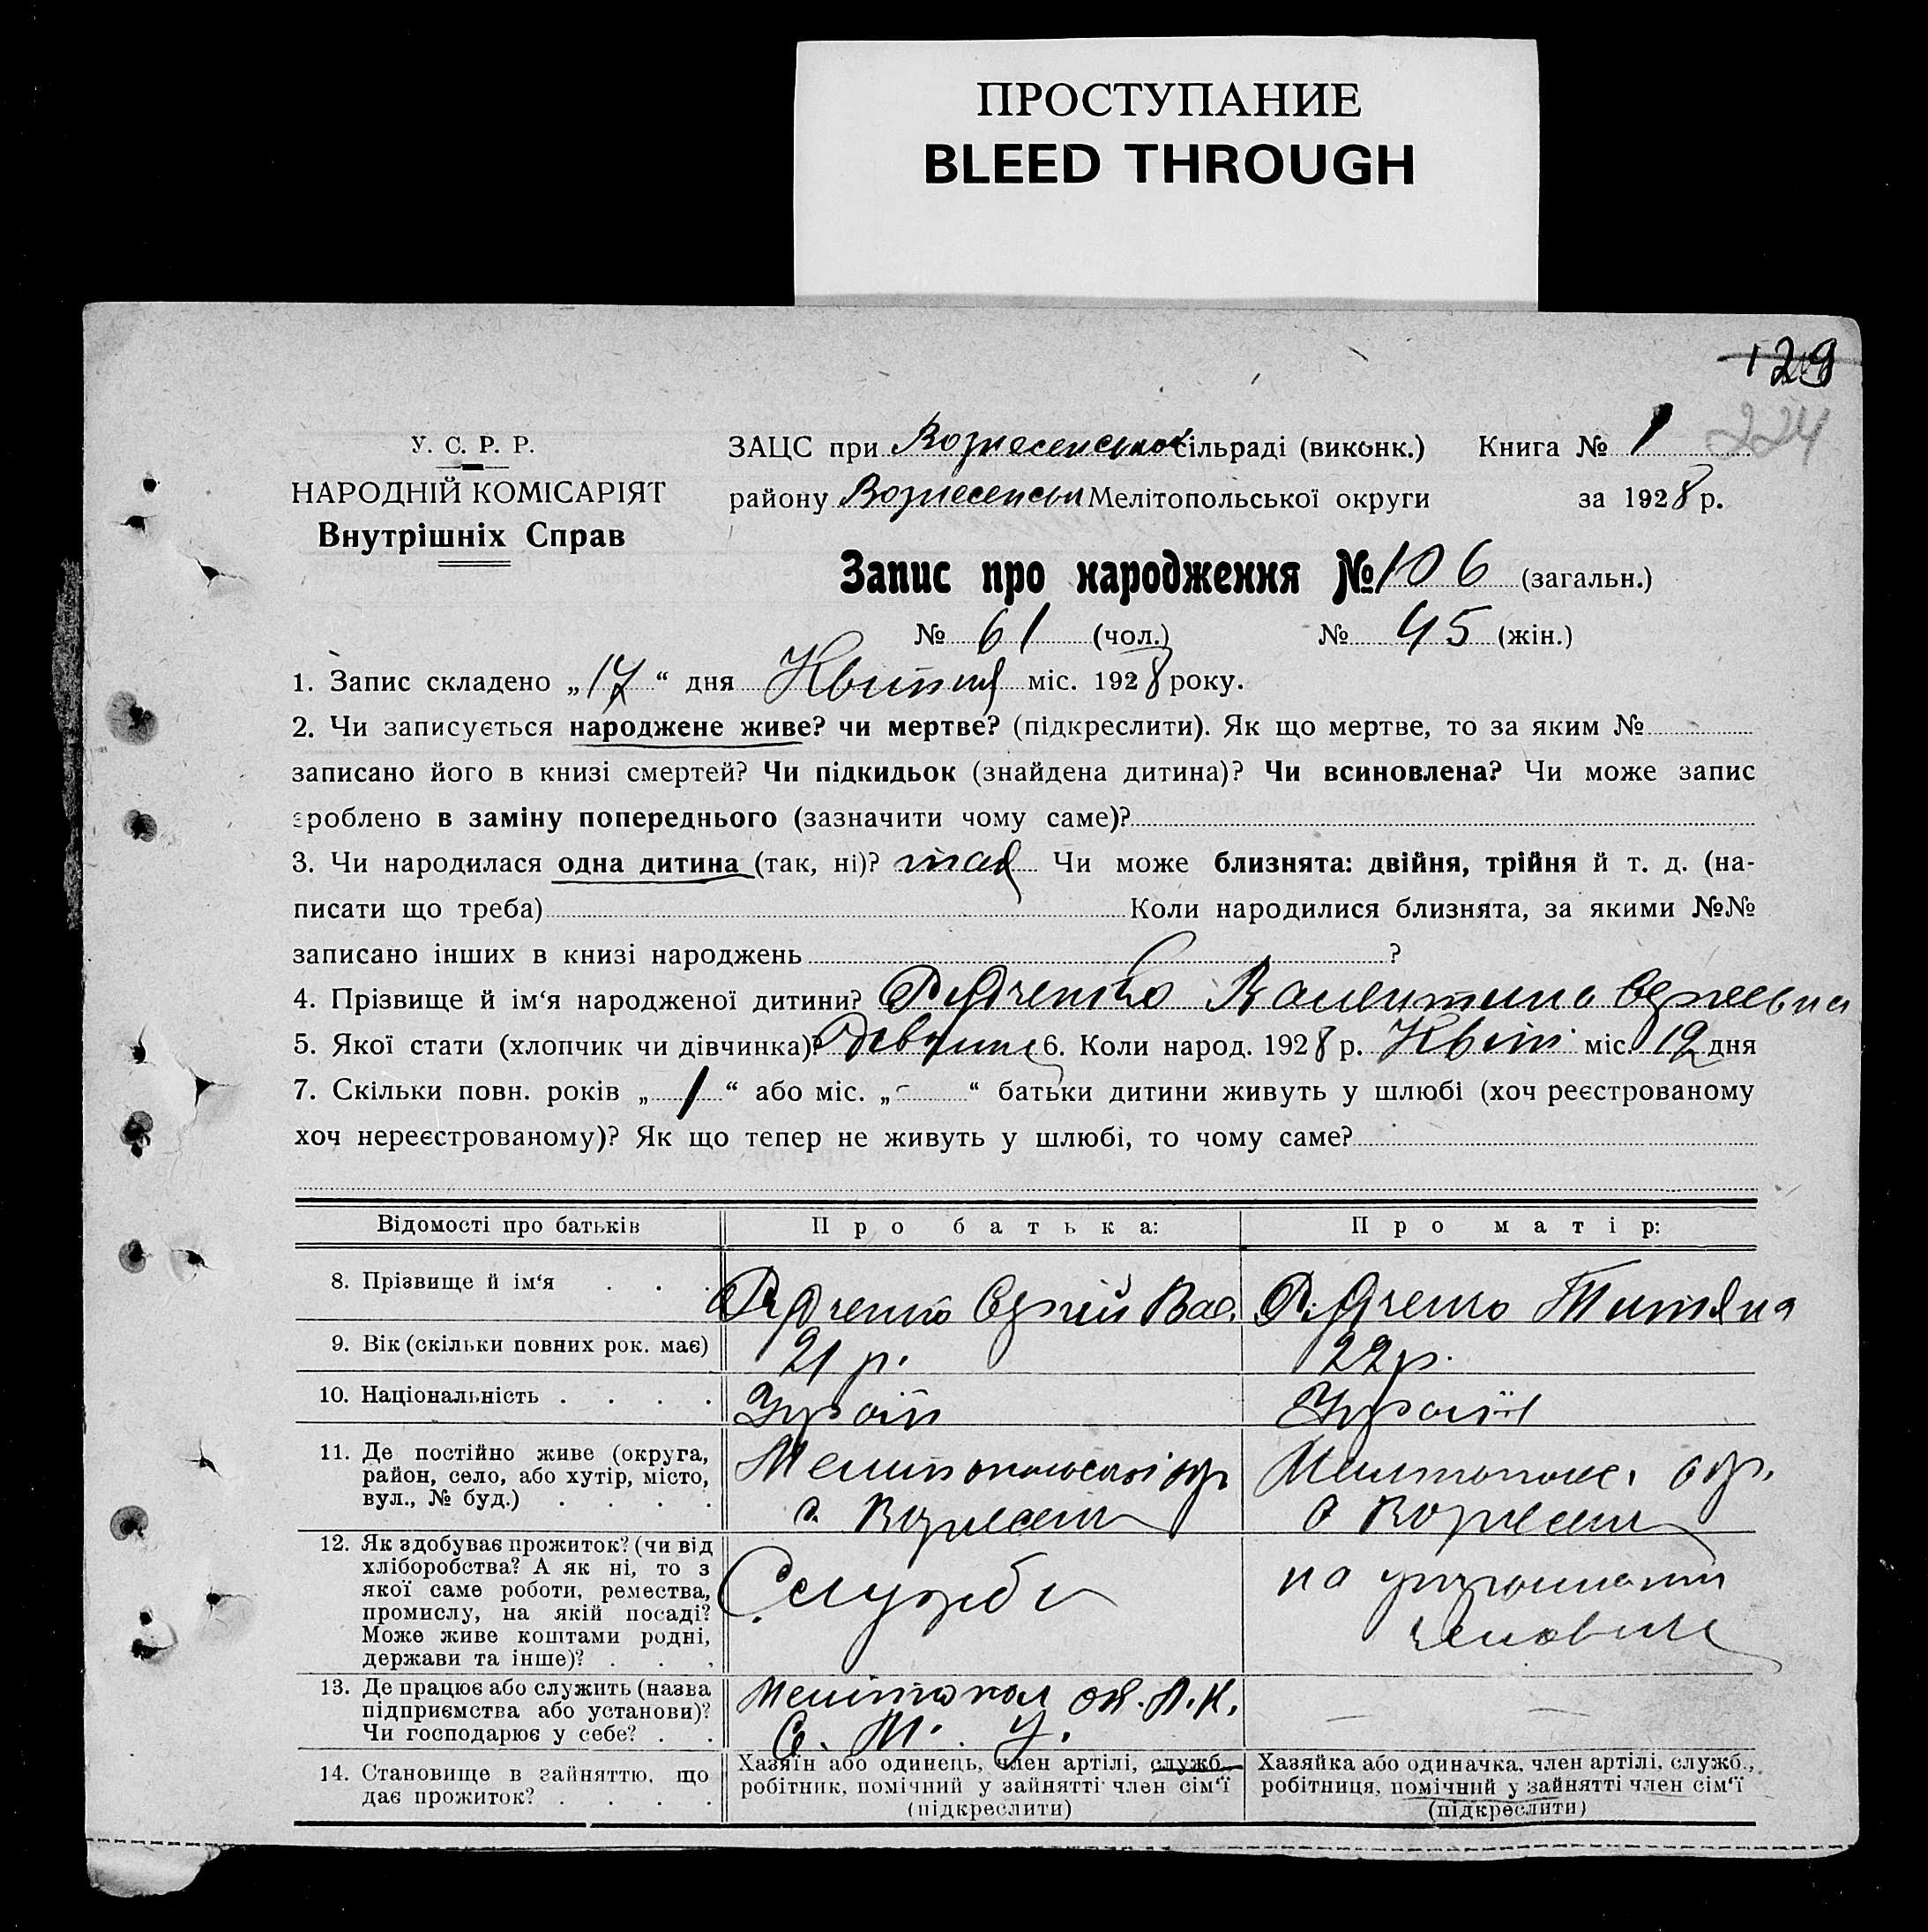 ПРОСТУПАНИЕ
BLEED THROUGH
129
224
У. С. Р. Р.
НАРОДНІЙ КОМІСАРІЯТ
Внутрішніх Справ
ЗАЦС при Вознесенської сільраді (виконк.) Книга № 1
району Вознесенськ Мелітопольської округи за 1928 р.
Запис про народження № 106 (загальн.)
№ 61 (чол.) № 45 (жін.)
1. Запис складено „17“ дня Квітня міс. 1928 року.
2. Чи записується народжене живе? чи мертве? (підкреслити). Як що мертве, то за яким №
записано його в книзі смертей? Чи підкидьок (знайдена дитина)? Чи всиновлена? Чи може запис
зроблено в заміну попереднього (зазначити чому саме)?
3. Чи народилася одна дитина (так, ні)? так Чи може близнята: двійня, трійня й т. д. (на-
писати що треба) Коли народилися близнята, за якими №№
записано інших в книзі народжень ?
4. Прізвище й ім‘я народженої дитини? Валентина
5. Якої стати (хлопчик чи дівчинка)? 6. Коли народ. 1928 р. Квіт міс. 12 дня
7. Скільки повн. років „ 1 “ або міс. „ - “ батьки дитини живуть у шлюбі (хоч реєстрованому
хоч нереєстрованому)? Як що тепер не живуть у шлюбі, то чому саме?
Відомості про батьків Про батька: Про матір:
8. Прізвище й ім‘я Сергій Вас.
9. Вік (скільки повних рок. має) 21 р. 22 р.
10. Національність
11. Де постійно живе (округа,
район, село, або хутір, місто,
вул., № буд.)
Мелітопольської окр
с. Вознесен
Мелітопольс. окр.
с Вознесен
12. Як здобуває прожиток? (чи від
хліборобства? А як ні, то з
якої саме роботи, ремества,
промислу, на якій посаді?
Може живе коштами родні,
держави та інше)?
Служба
на
13. Де працює або служить (назва
підприємства або установи)?
Чи господарює у себе?
Мелітопол
14. Становище в зайняттю, що
дає прожиток?
Хазяїн або одинець, член артілі, служб.
робітник, помічний у зайнятті член сім‘ї
(підкреслити)
Хазяйка або одиначка, член артілі, служб.,
робітниця, помічний у зайнятті член сім‘ї
(підкреслити)